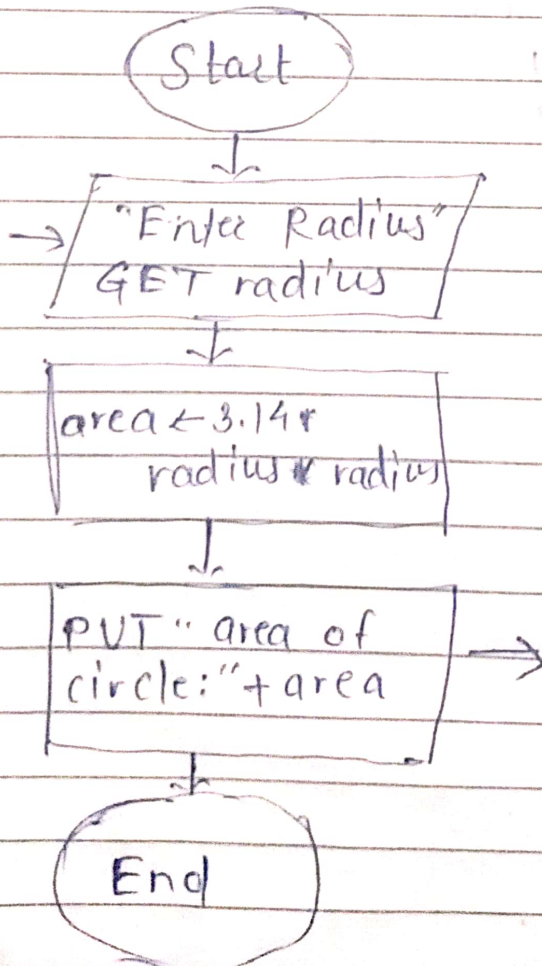 Start
"Enter Radius"
GET radius
area ← 3.14 *
radius * radius
PUT " area of
circle:" + area
End